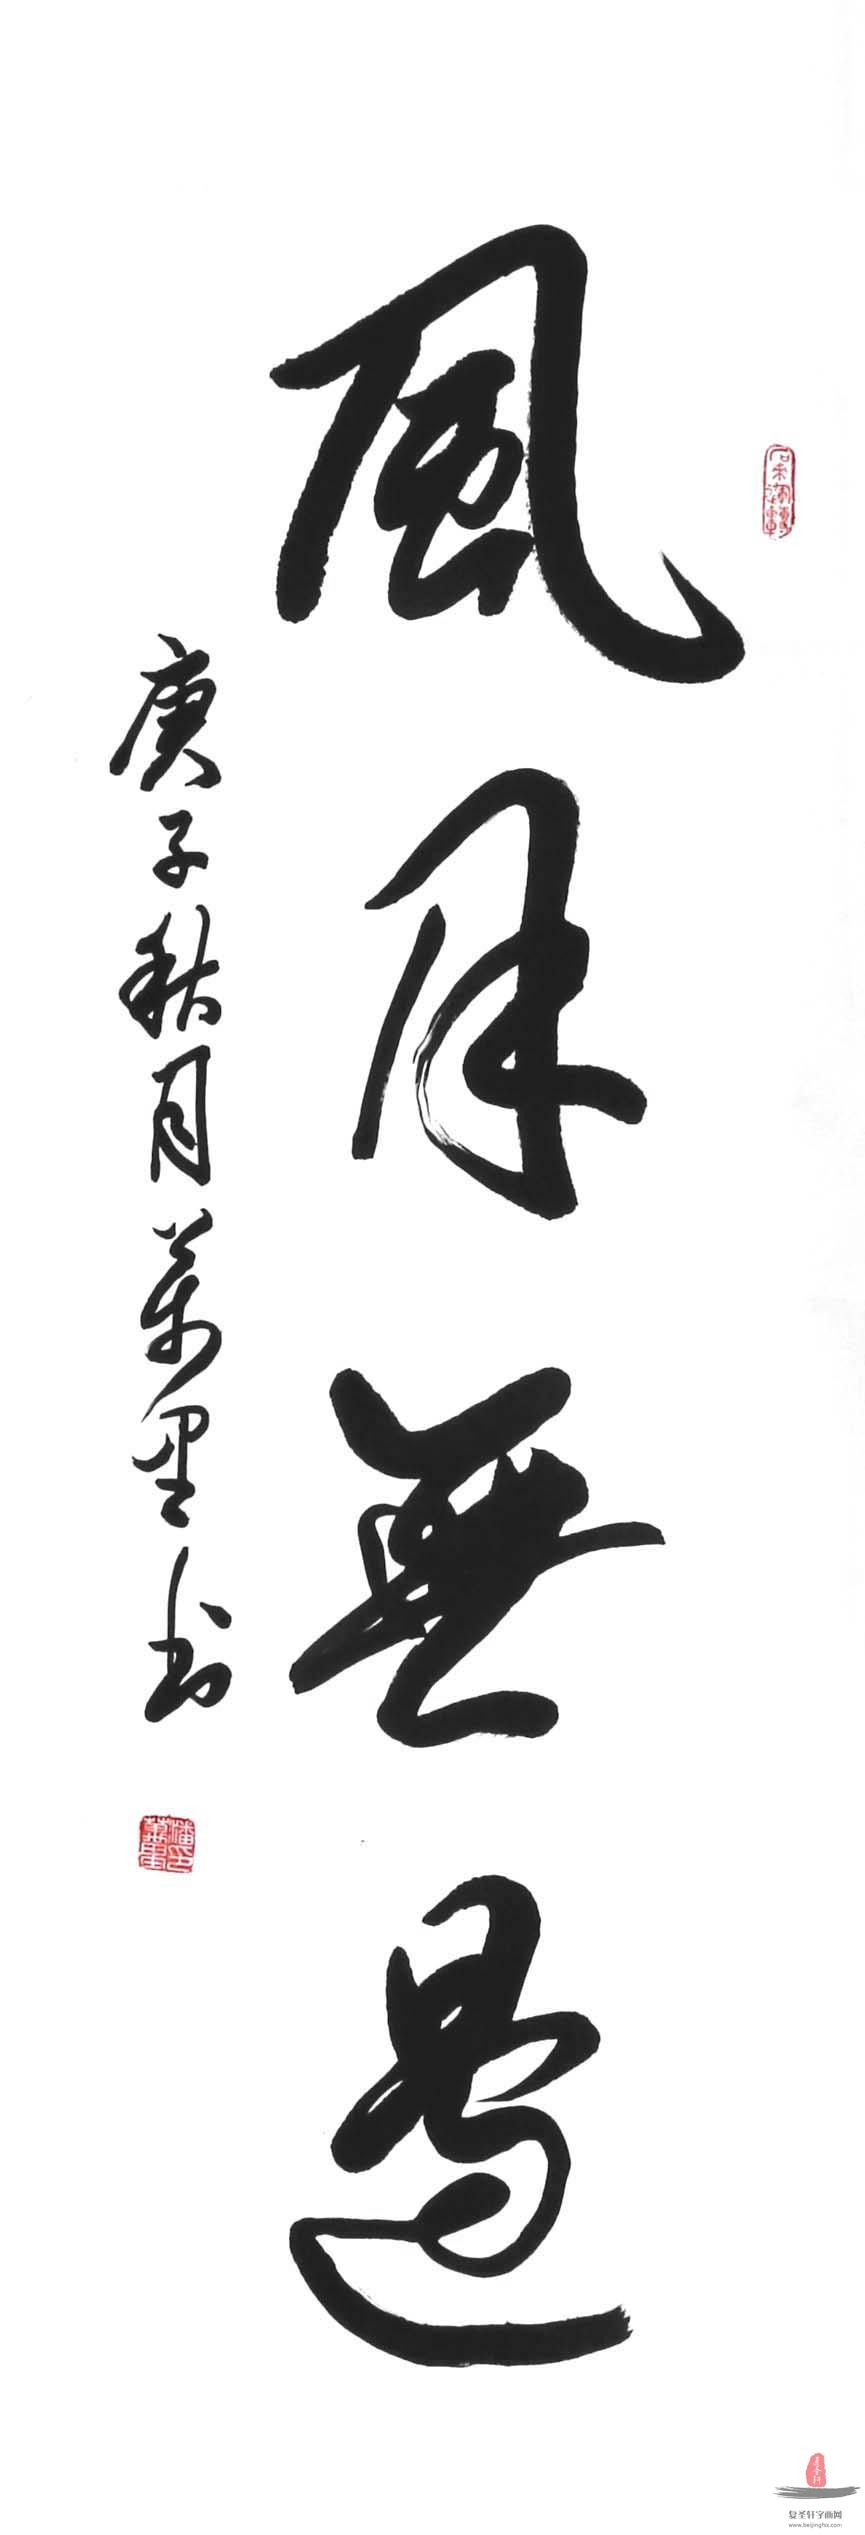 風月無邊
庚子秋月萬里书
复圣轩字画网
www.beijinghx.com